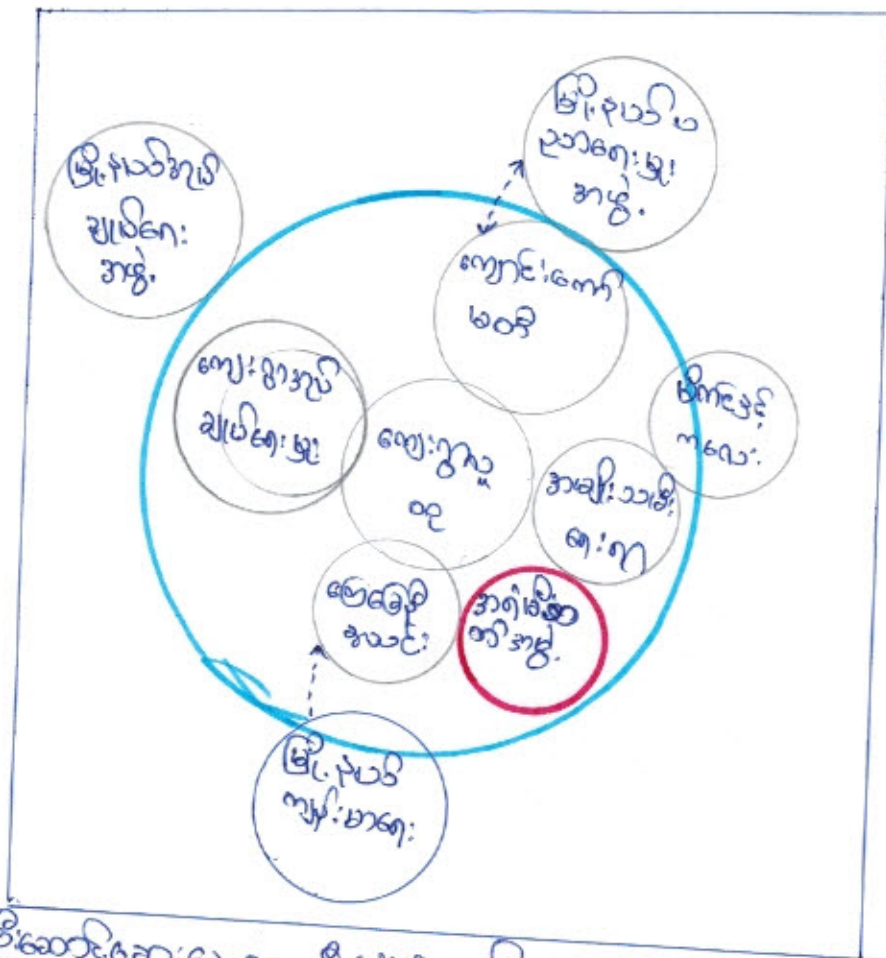 မြို့နယ်အုပ်
ချုပ်ရေး
အဖွဲ့
မြို့နယ်ပ
ညာရေးမှူး
အဖွဲ့
ကျောင်းကော်
မတီ
ကျေးရွာအုပ်
ချုပ်ရေးမှူး
ကျေးရွာလူ
ထု
မိခင်နှင့်
ကလေး
အမျိုးသမီး
ရေးရာ
ကြေခြေနီ
အသင်း
အရံမီးသ
တ်အဖွဲ့
မြို့နယ်
ကျန်းမာရေး